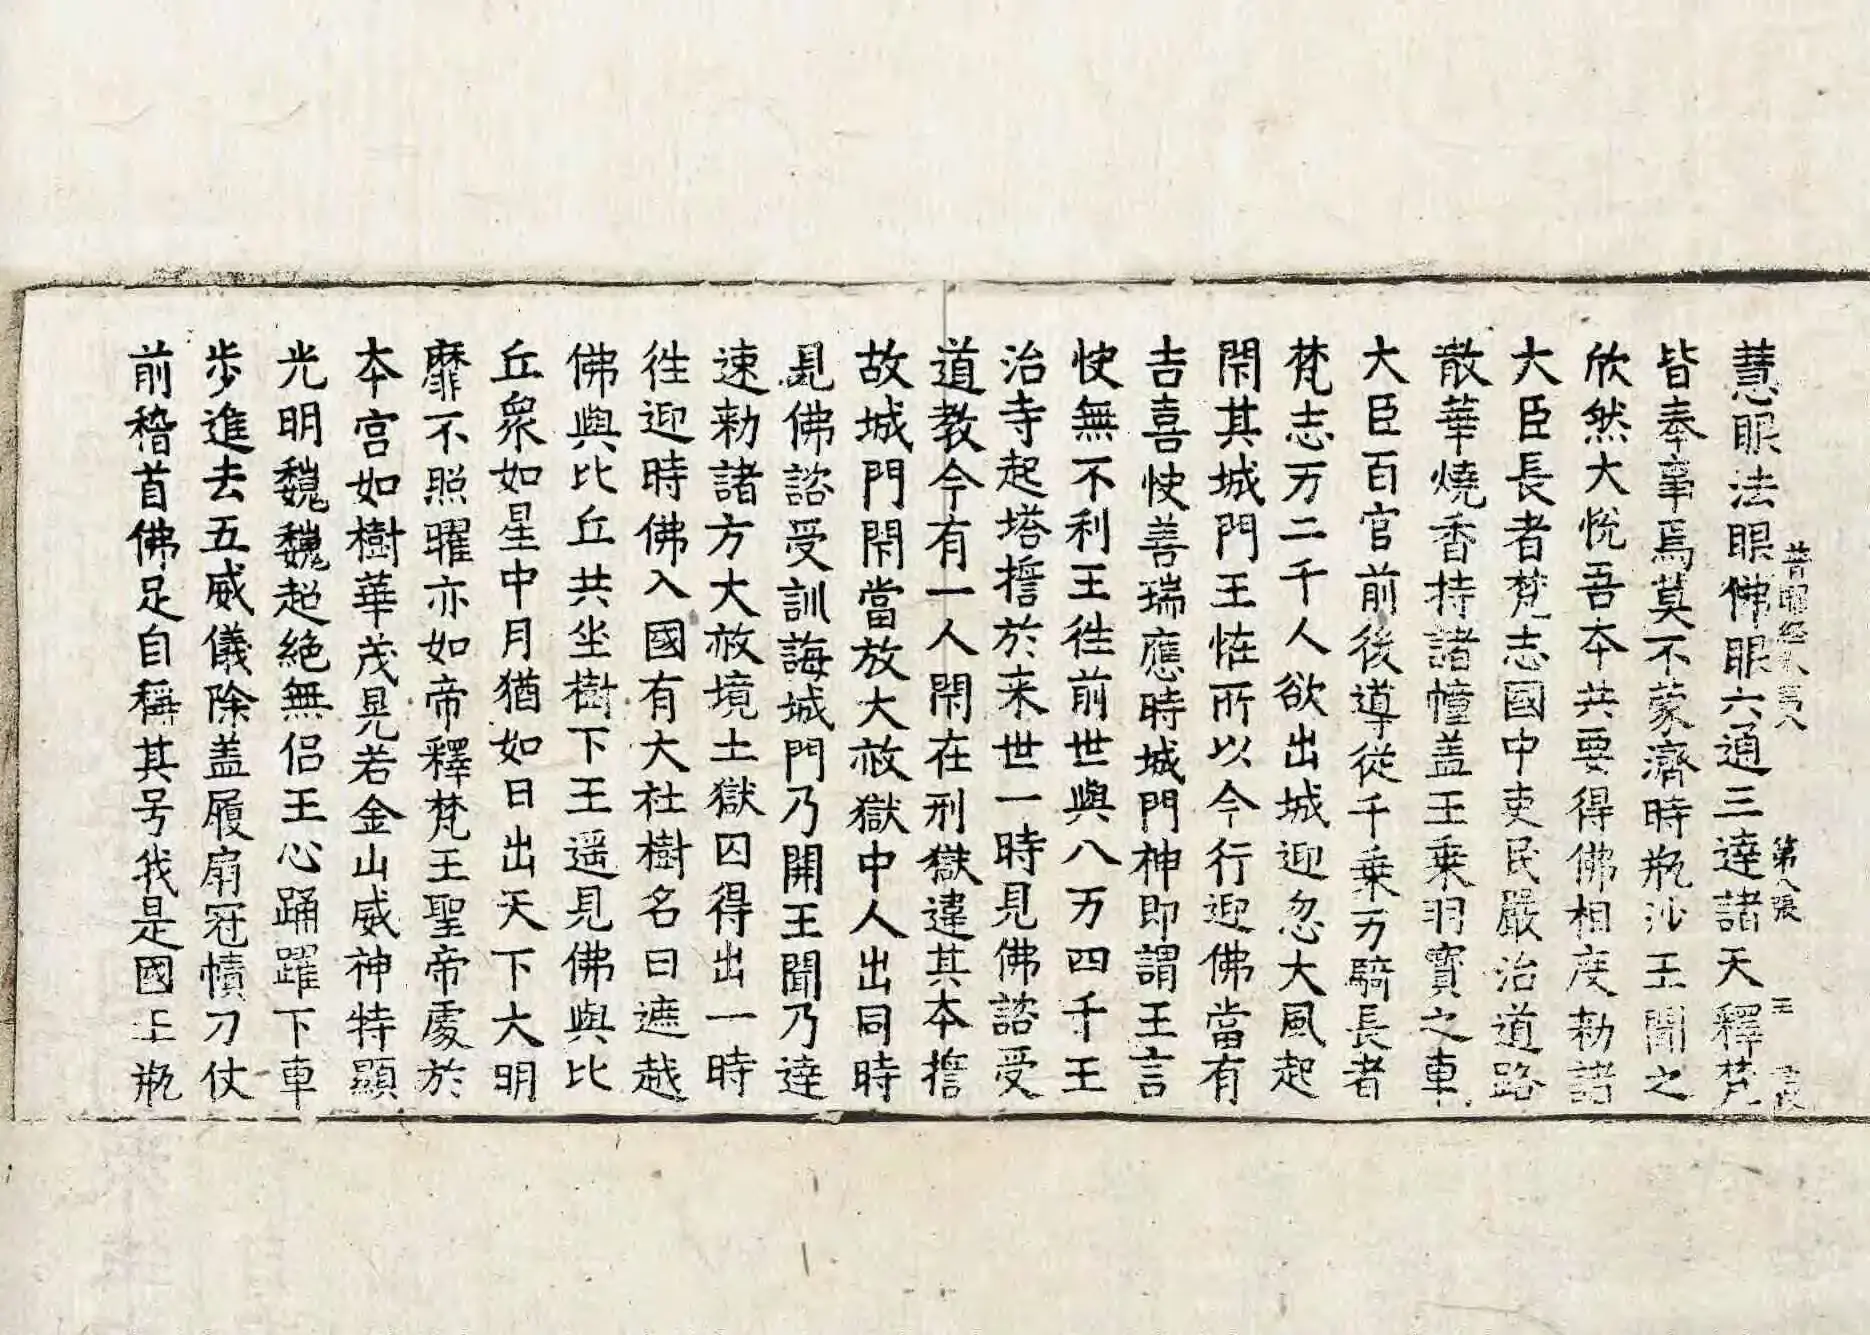 普曜經卷第八 第八張 王
慧眼法眼佛眼六通三達諸天釋梵
皆奉事焉莫不蒙濟時瓶沙王聞之
欣然大恱吾本共要得佛相度勑諸
大臣長者梵志國中吏民嚴治道路
散華燒香持諸幢盖王乗羽寳之車
大臣百官前後導從千乗万騎長者
梵志万二千人欲出城迎忽大風起
閇其城門王恠所以今行迎佛當有
吉喜快善瑞應時城門神即謂王言
快無不利王往前世與八万四千王
治寺起塔擔於来世一時見佛諮受
道教今有一人閇在刑獄違其本擔
故城門閇當放大赦獄中人出同時
見佛諮受訓誨城門乃開王聞乃達
速勑諸方大赦境土獄囚得出一時
往迎時佛入國有大社樹名曰遮越
佛與比丘共坐樹下王遥見佛與比
丘衆如星中月猶如日出天下大明
靡不照曜亦如帝釋梵王聖帝處於
本宫如樹華茂晃若金山威神特顯
光明巍巍超絶無侣王心踊躍下車
步進去五威儀除盖履扇冠幘刀仗
前稽首佛足自稱其号我是國王瓶